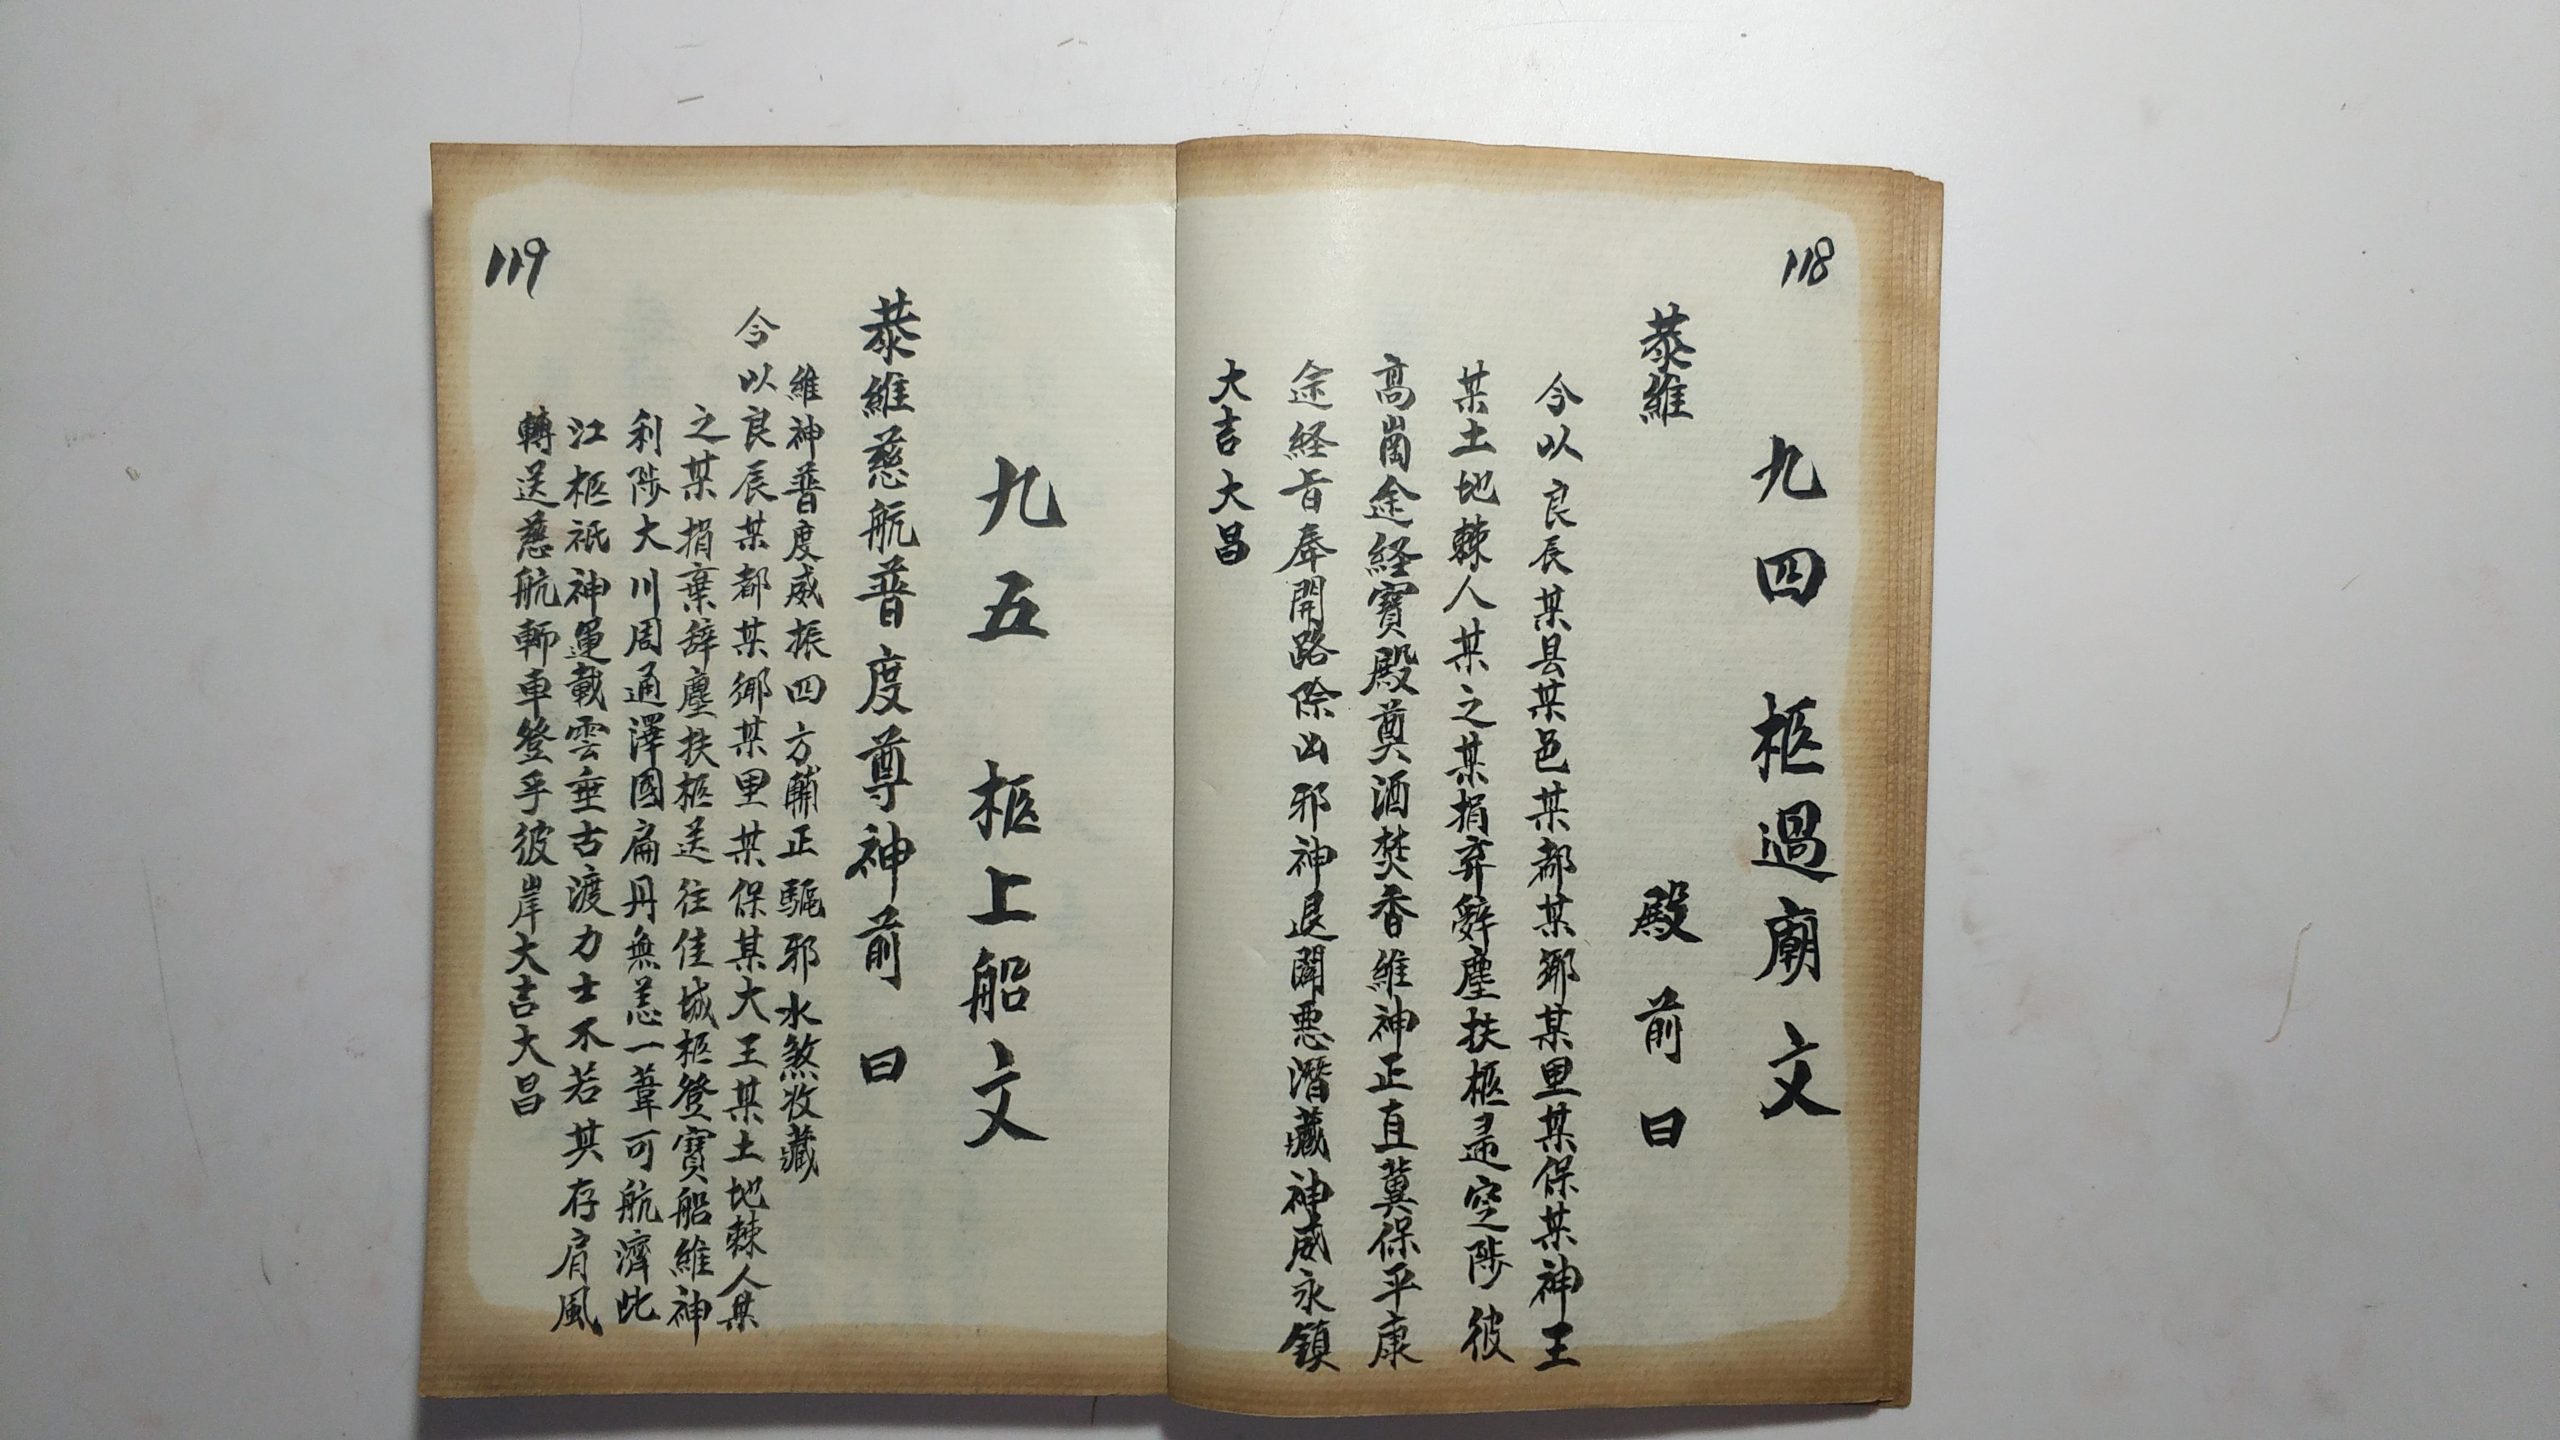 118
九四 柩過廟文
恭維 殿前曰
今以良辰某县某邑某都某鄉某里某保某神王
某土地棘人某之某捐弃辭塵扶柩還空陟彼
高崗途経寶殿奠酒焚香維神正直冀保平康
途経旨奉開路除凶邪神退闢悪潛藏神威永鎮
大吉大昌
119
九五 柩上船文
恭維慈航普度尊神前曰
維神普度威振四方輔正驅邪水煞收藏
今以良辰某都某鄉某里某保某大王某土地棘人某
之某捐棄辞塵扶柩送往佳城柩登寶船維神
利陟大川周通澤國扁丹無恙一葦可航濟此
江柩祇神運載雲垂古渡力士不若其存肩風
轉送慈航輀車登乎彼岸大吉大昌